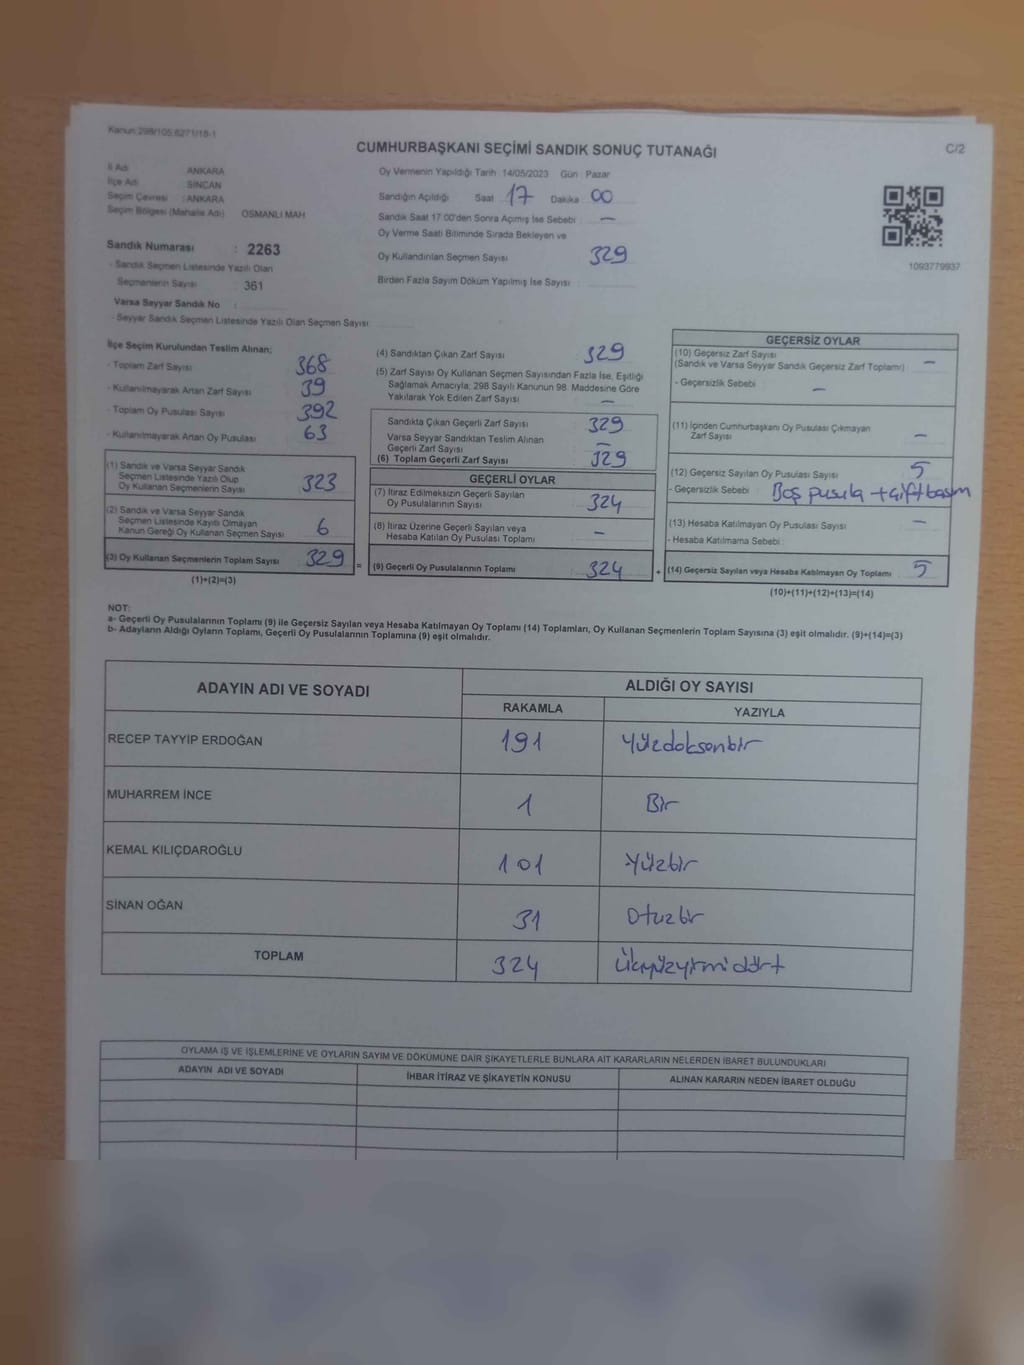 Kanun:298/105.6271/18-1
CUMHURBAŞKANI SEÇİMİ SANDIK SONUÇ TUTANAĞI
C/2
İl Adı : ANKARA
İlçe Adı : SİNCAN
Seçim Çevresi : ANKARA
Seçim Bölgesi (Mahalle Adı) OSMANLI MAH
Sandık Numarası : 2263
- Sandık Seçmen Listesinde Yazılı Olan
Seçmenlerin Sayısı : 361
Varsa Seyyar Sandık No :
- Seyyar Sandık Seçmen Listesinde Yazılı Olan Seçmen Sayısı
Oy Vermenin Yapıldığı Tarih : 14/05/2023 Gün : Pazar
Sandığın Açıldığı Saat : 17 Dakika : 00
Sandık Saat 17:00'den Sonra Açılmış İse Sebebi : -
Oy Verme Saati Bitiminde Sırada Bekleyen ve
Oy Kullandırılan Seçmen Sayısı : 329
Birden Fazla Sayım Döküm Yapılmış İse Sayısı :
1093779937
İlçe Seçim Kurulundan Teslim Alınan;
- Toplam Zarf Sayısı : 368
- Kullanılmayarak Artan Zarf Sayısı : 39
- Toplam Oy Pusulası Sayısı : 392
- Kullanılmayarak Artan Oy Pusulası : 63
(1) Sandık ve Varsa Seyyar Sandık
Seçmen Listesinde Yazılı Olup
Oy Kullanan Seçmenlerin Sayısı : 323
(2) Sandık ve Varsa Seyyar Sandık
Seçmen Listesinde Kayıtlı Olmayan
Kanun Gereği Oy Kullanan Seçmen Sayısı : 6
(3) Oy Kullanan Seçmenlerin Toplam Sayısı : 329
(1)+(2)=(3)
=
(4) Sandıktan Çıkan Zarf Sayısı : 329
(5) Zarf Sayısı Oy Kullanan Seçmen Sayısından Fazla İse, Eşitliği
Sağlamak Amacıyla; 298 Sayılı Kanunun 98. Maddesine Göre
Yakılarak Yok Edilen Zarf Sayısı : -
Sandıkta Çıkan Geçerli Zarf Sayısı : 329
Varsa Seyyar Sandıktan Teslim Alınan
Geçerli Zarf Sayısı : -
(6) Toplam Geçerli Zarf Sayısı : 329
GEÇERLİ OYLAR
(7) İtiraz Edilmeksizin Geçerli Sayılan
Oy Pusulalarının Sayısı : 324
(8) İtiraz Üzerine Geçerli Sayılan veya
Hesaba Katılan Oy Pusulası Toplamı : -
(9) Geçerli Oy Pusulalarının Toplamı : 324
+
GEÇERSİZ OYLAR
(10) Geçersiz Zarf Sayısı
(Sandık ve Varsa Seyyar Sandık Geçersiz Zarf Toplamı) : -
- Geçersizlik Sebebi : -
(11) İçinden Cumhurbaşkanı Oy Pusulası Çıkmayan
Zarf Sayısı : -
(12) Geçersiz Sayılan Oy Pusulası Sayısı : 5
- Geçersizlik Sebebi : Boş pusula + çift basım
(13) Hesaba Katılmayan Oy Pusulası Sayısı : -
- Hesaba Katılmama Sebebi :
(14) Geçersiz Sayılan veya Hesaba Katılmayan Oy Toplamı : 5
(10)+(11)+(12)+(13)=(14)
NOT:
a- Geçerli Oy Pusulalarının Toplamı (9) ile Geçersiz Sayılan veya Hesaba Katılmayan Oy Toplamı (14) Toplamları, Oy Kullanan Seçmenlerin Toplam Sayısına (3) eşit olmalıdır. (9)+(14)=(3)
b- Adayların Aldığı Oyların Toplamı, Geçerli Oy Pusulalarının Toplamına (9) eşit olmalıdır.
ADAYIN ADI VE SOYADI
ALDIĞI OY SAYISI
RAKAMLA YAZIYLA
RECEP TAYYİP ERDOĞAN 191 Yüzdoksanbir
MUHARREM İNCE 1 Bir
KEMAL KILIÇDAROĞLU 101 Yüzbir
SİNAN OĞAN 31 Otuzbir
TOPLAM 324 Üçyüzyirmidört
OYLAMA İŞ VE İŞLEMLERİNE VE OYLARIN SAYIM VE DÖKÜMÜNE DAİR ŞİKAYETLERLE BUNLARA AİT KARARLARIN NELERDEN İBARET BULUNDUKLARI
ADAYIN ADI VE SOYADI İHBAR İTİRAZ VE ŞİKAYETİN KONUSU ALINAN KARARIN NEDEN İBARET OLDUĞU